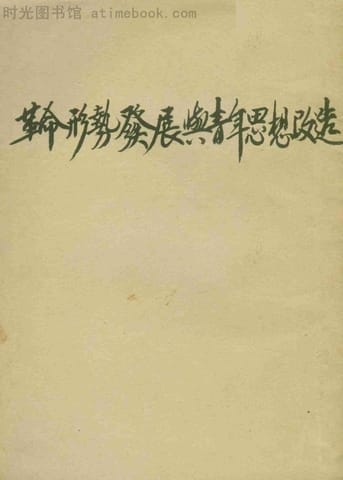 时光图书馆 - atimebook.com
革命形勢發展與青年思想改造